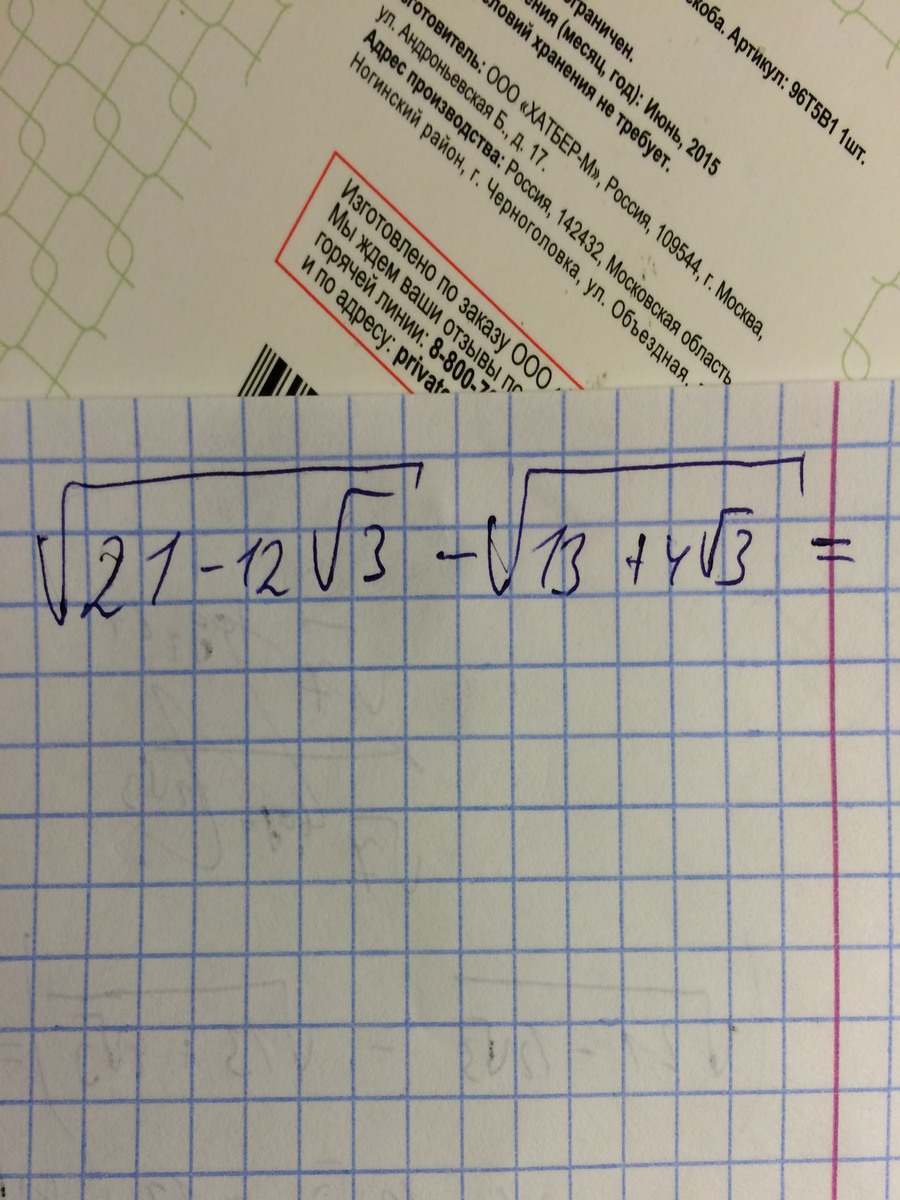 скоба. Артикул: 96Т5В1 1шт.
ограничен.
ения (месяц, год): Июнь, 2015
словий хранения не требует.
зготовитель: ООО «ХАТБЕР-М», Россия, 109544, г. Москва,
ул. Андроньевская Б., д. 17.
Адрес производства: Россия, 142432, Московская область
Ногинский район, г. Черноголовка, ул. Объездная,
Изготовлено по заказу ООО
Мы ждем ваши отзывы по
горячей линии: 8-800-7
и по адресу: private
√(21 - 12√3) - √(13 + 4√3) =